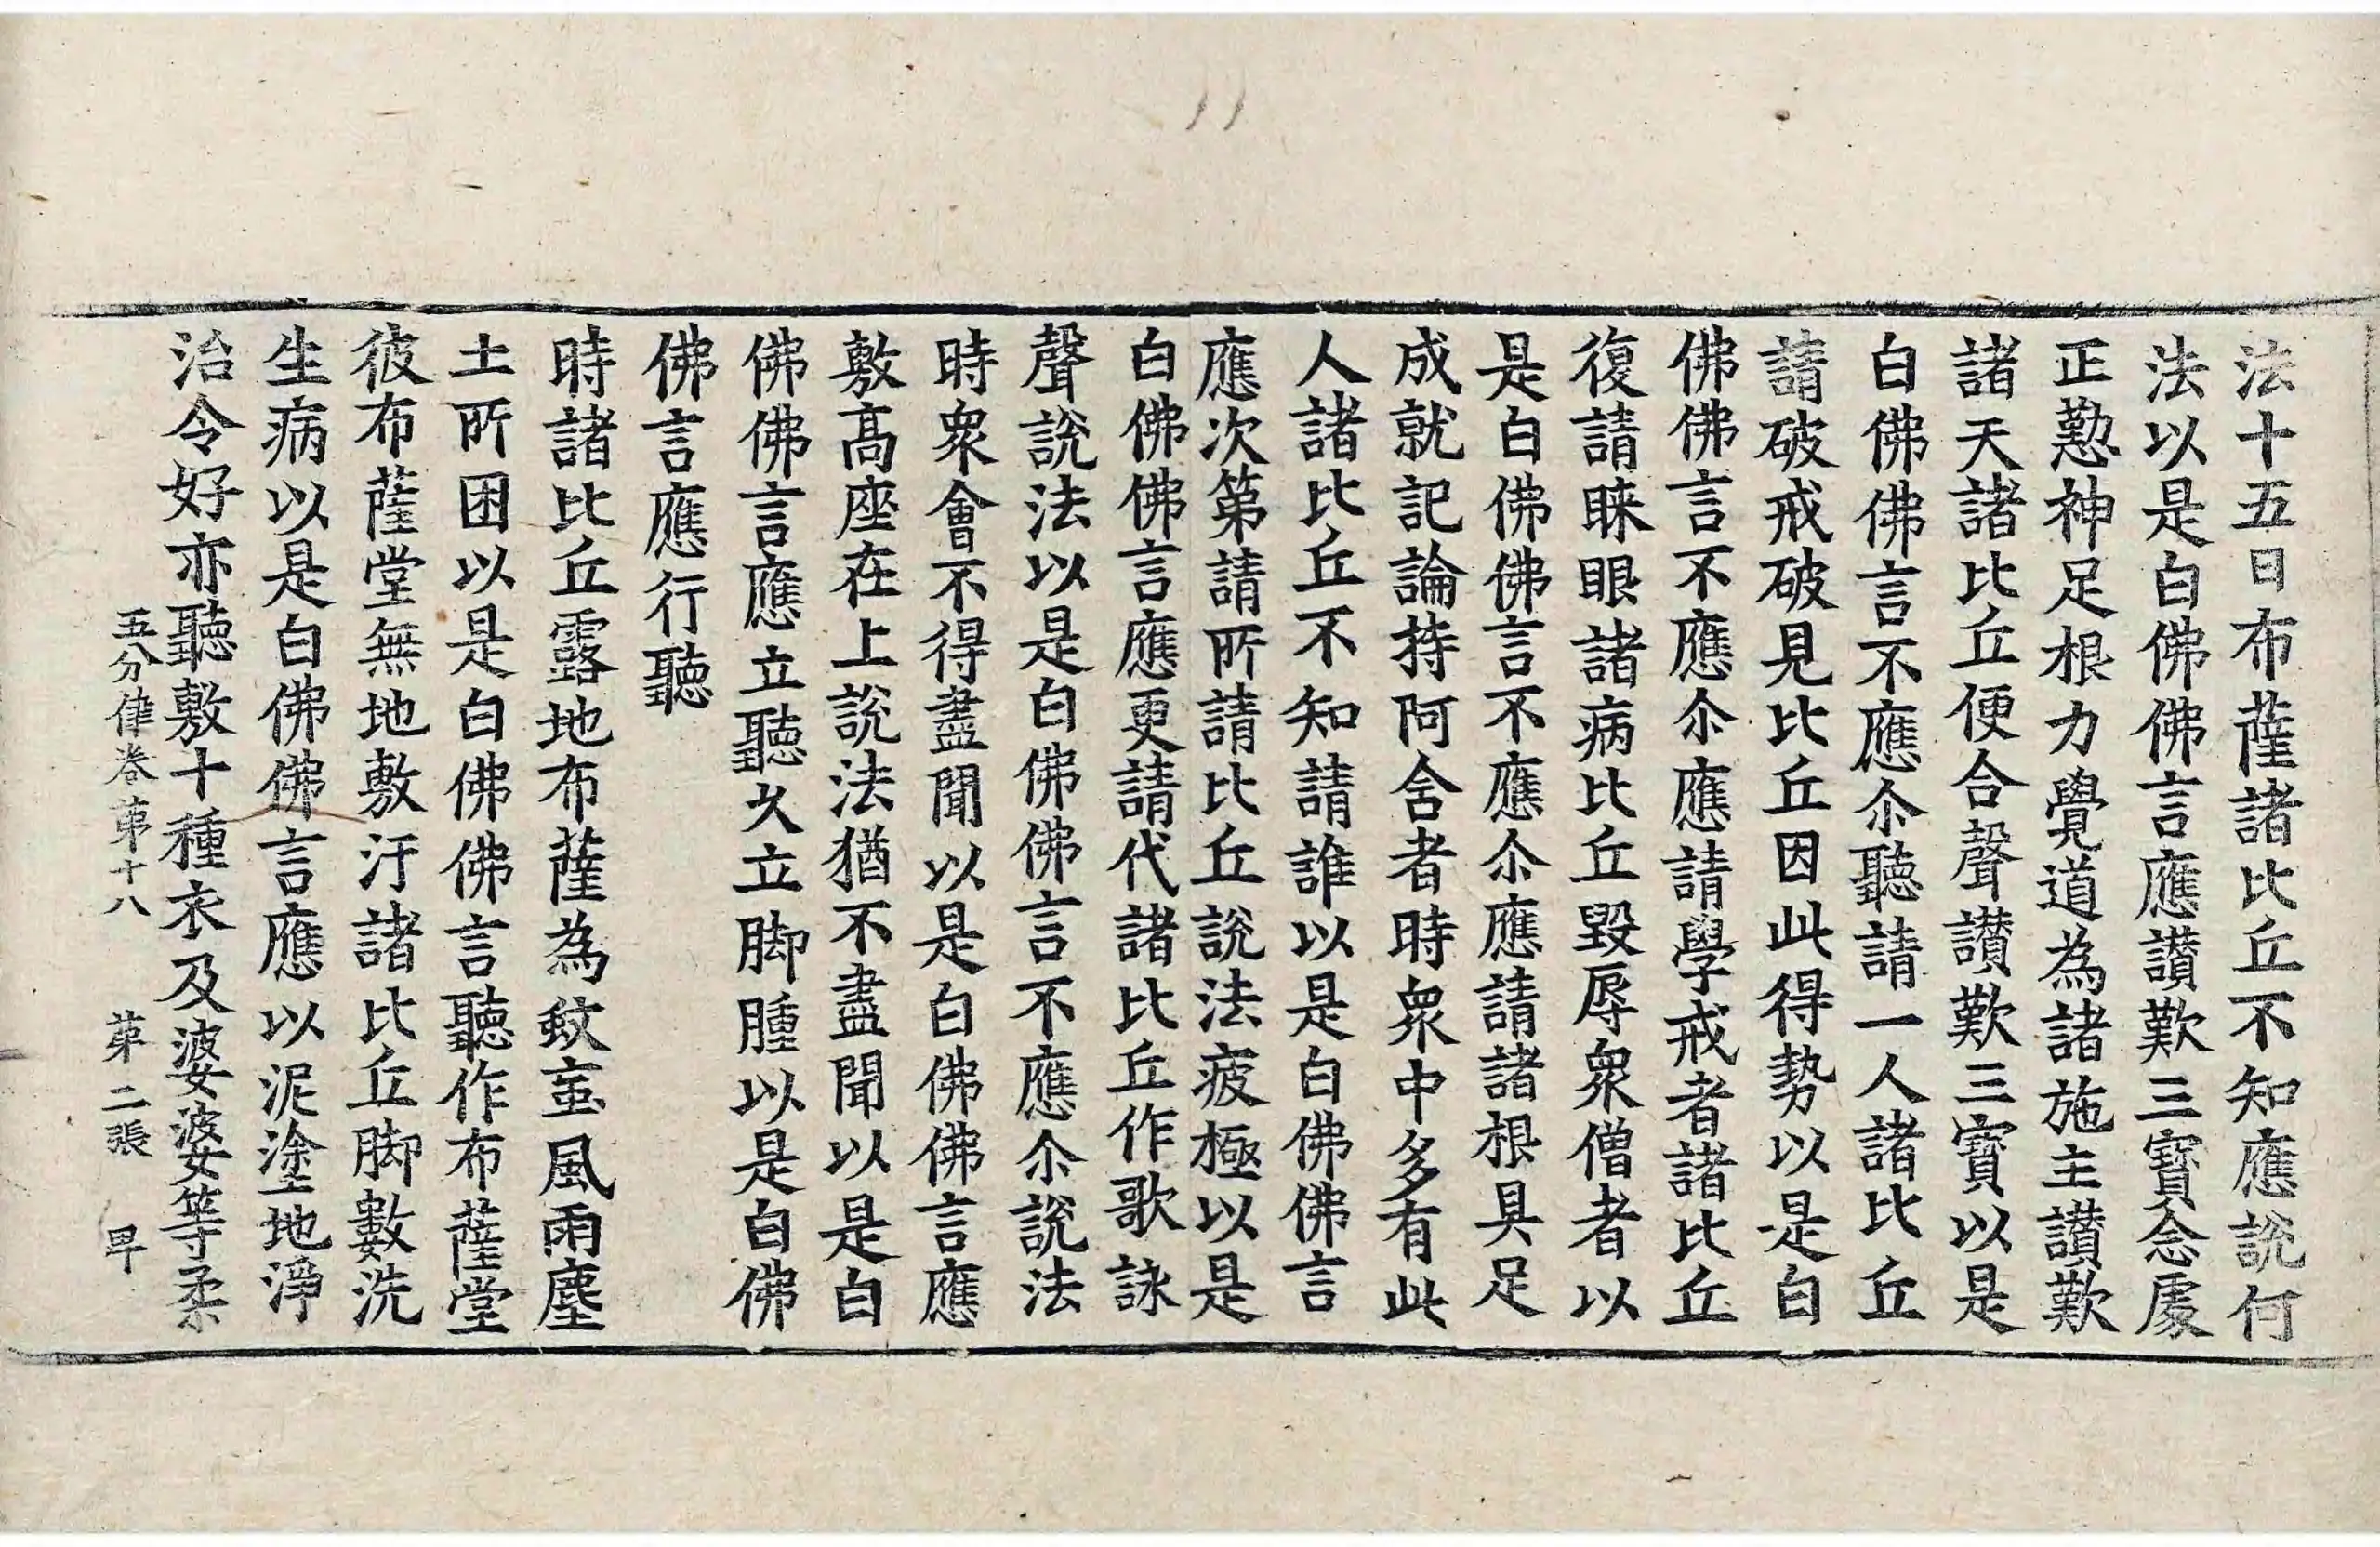 法十五日布薩諸比丘不知應說何
法以是白佛佛言應讃歎三寶念處
正懃神足根力覺道為諸施主讃歎
諸天諸比丘便合聲讃歎三寶以是
白佛佛言不應尒聽請一人諸比丘
請破戒破見比丘因此得勢以是白
佛佛言不應尒應請學戒者諸比丘
復請睞眼諸病比丘毀辱衆僧者以
是白佛佛言不應尒應請諸根具足
成就記論持阿含者時衆中多有此
人諸比丘不知請誰以是白佛佛言
應次第請所請比丘說法疲極以是
白佛佛言應更請代諸比丘作歌詠
聲說法以是白佛佛言不應尒說法
時衆會不得盡聞以是白佛佛言應
敷髙座在上說法猶不盡聞以是白
佛佛言應立聽久立脚腫以是白佛
佛言應行聽
時諸比丘露地布薩為蚊䖟風雨塵
土所困以是白佛佛言聽作布薩堂
彼布薩堂無地敷汙諸比丘脚數洗
生病以是白佛佛言應以泥塗地淨
治令好亦聽敷十種衣及婆婆等柔
五分律卷苐十八 苐二張 卑